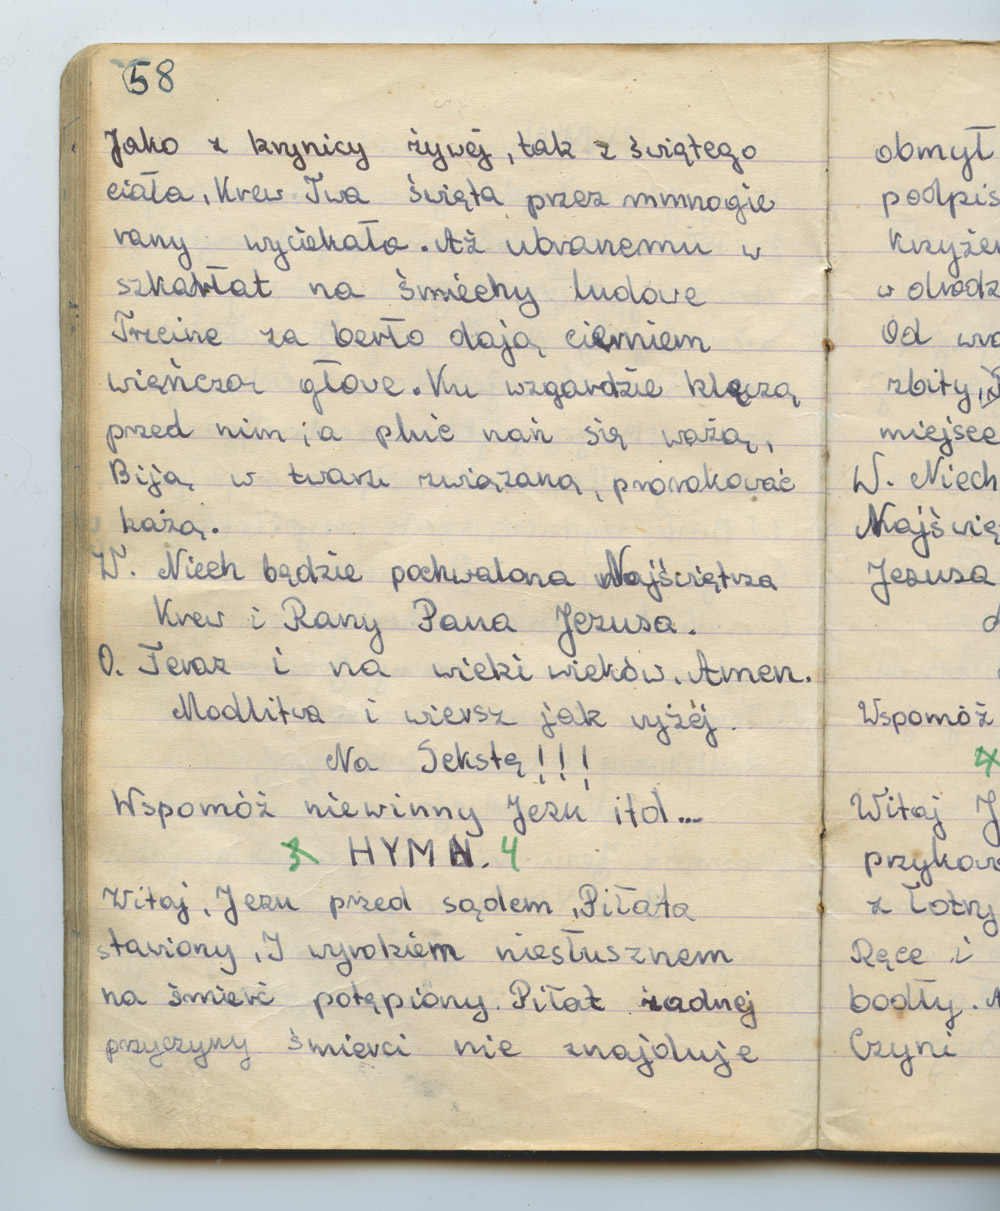 58
Jako z krynicy żywéj, tak z świętego
ciała, Krew Twa święta przez mmnogie
rany wyciekała. Aż ubranemu w
szkarłat na śmiechy ludowe
Trzcine za berło dają cierniem
wieńczą głowe. Ku wzgardzie klęczą
przed nim, a plúć nań się ważą,
Biją w twarz związaną, prorokować
każą.
W. Niech będzie pochwalona Najświętrza
Krew i Rany Pana Jezusa.
O. Teraz i na wieki wieków. Amen.
Modlitwa i wiersz jak wyżéj.
Na Sekstę!!!
Wspomóż niewinny Jezu itd...
3 HYMN. 4
Witaj, Jezu przed sądem, Piłata
stawiony, I wyrokiem niesłusznem
na śmierć potępióny. Piłat żadnej
przyczyny śmierci nie znajduje
obmył
podpis
Krzyżem
w drodz
Od wro
zbity,
miejsce
W. Niech
Najświę
Jezusa
Wspomóż
4
Witaj J
przykow
z łotry
Ręce i
bodły.
Czyni